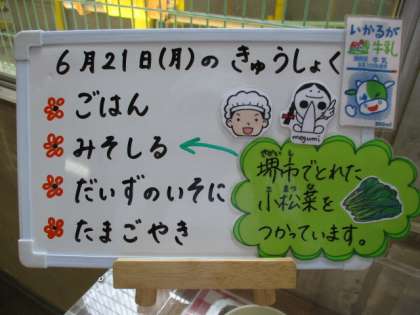 6月21日(月)の きゅうしょく
ごはん
みそしる
だいずのいそに
たまごやき
megumi
いかるが
牛乳
堺市でとれた
小松菜を
つかっています。